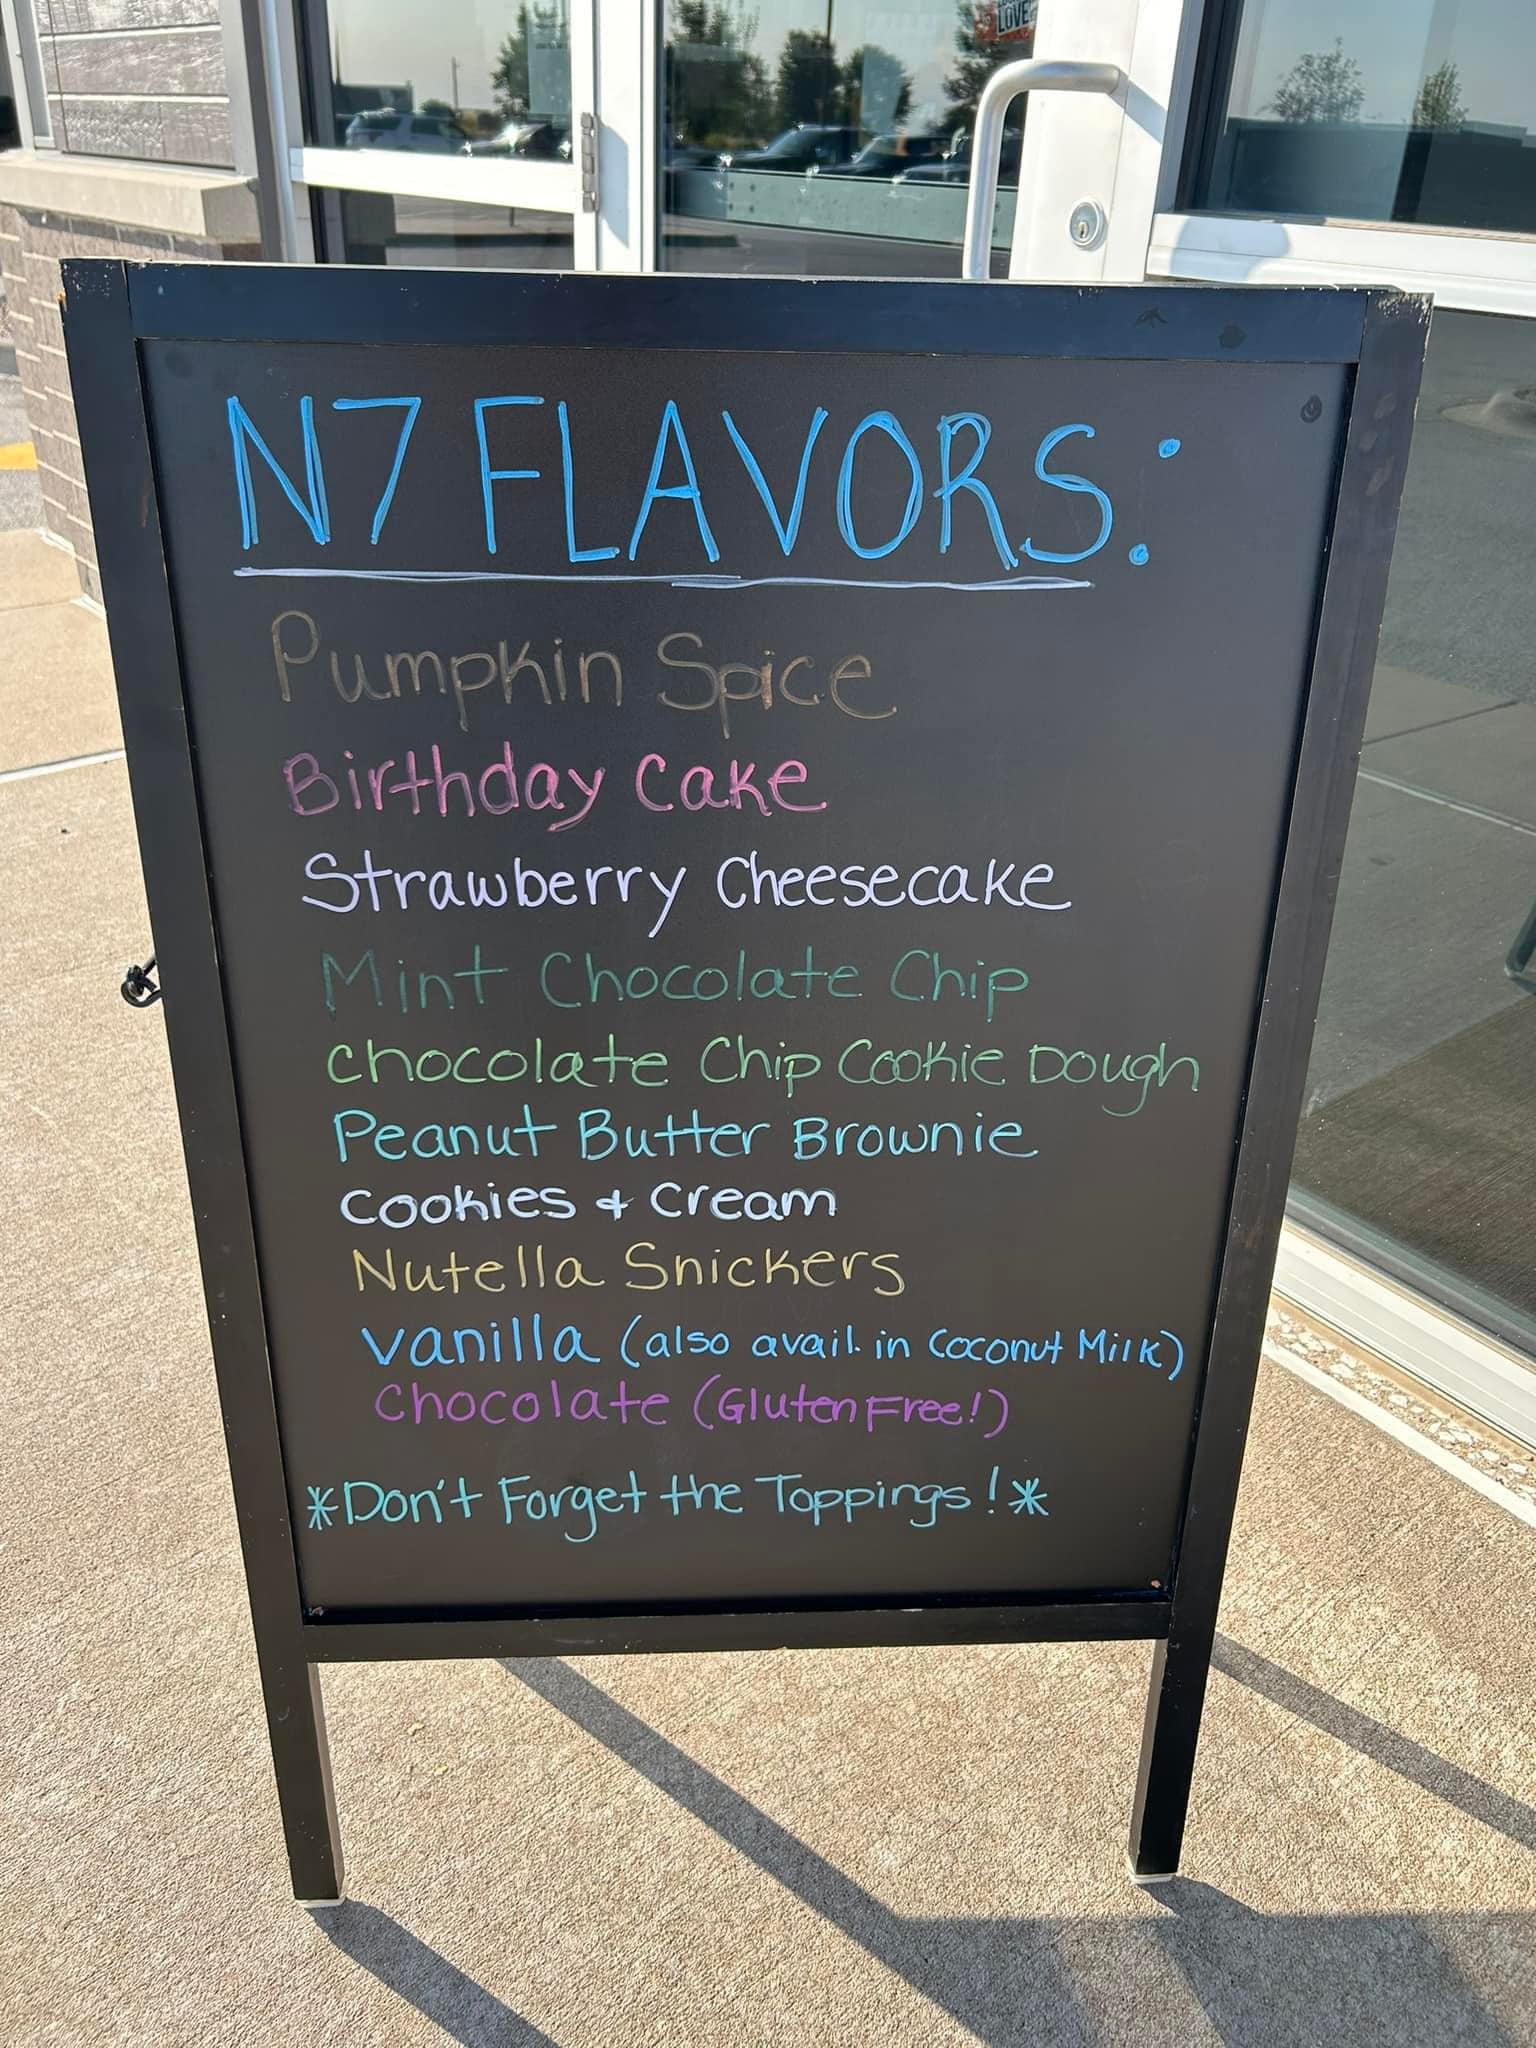 LOVE
N7 FLAVORS:
Pumpkin Spice
Birthday Cake
Strawberry Cheesecake
Mint Chocolate Chip
Chocolate Chip Cookie Dough
Peanut Butter Brownie
Cookies & Cream
Nutella Snickers
Vanilla (also avail. in Coconut Milk)
Chocolate (Gluten Free!)
*Don't Forget the Toppings!*